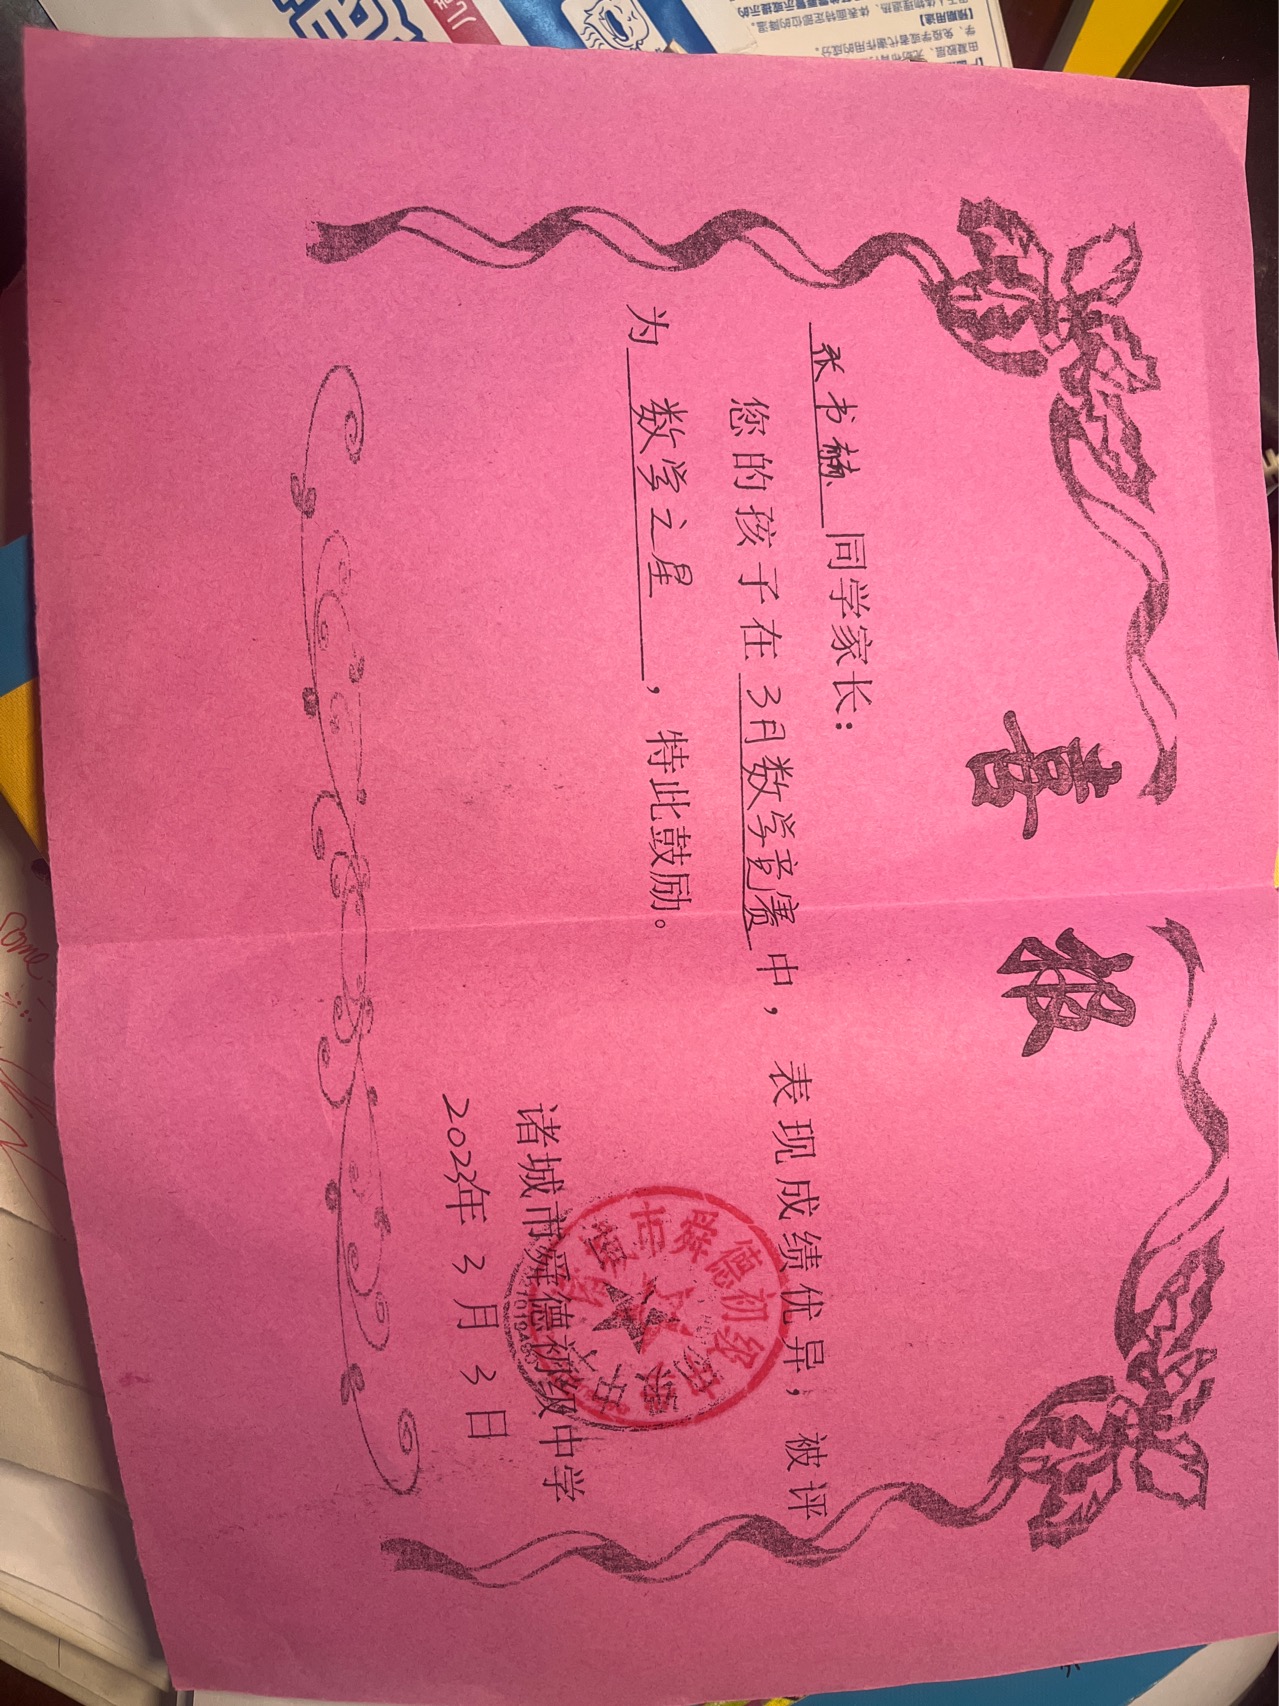 喜报
张书赫 同学家长：
您的孩子在 3月数学竞赛 中，表现成绩优异，被评
为 数学之星 ，特此鼓励。
诸城市舜德初级中学
2023年 3 月 3 日
诸城市舜德初级中学
Some